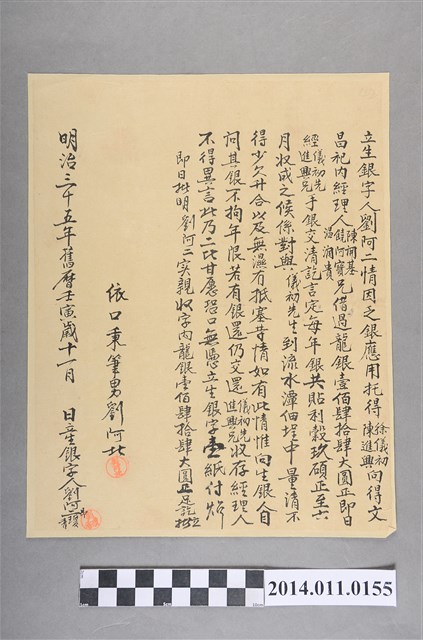 立生銀字人劉阿二情因乏銀應用托得徐儀初陳進興向得文
昌祀內經理人陳詞基饒阿寶温潤貴兄借過龍銀壹佰肆拾肆大圓正即日
經儀初先進興兄手銀交清訖言定每年銀共貼利穀玖碩正至六
月收成之候係對與儀初先生到流水潭佃埕中量清不
得少欠升合以及無濕冇抵塞等情如有此情惟向生銀人自
問其銀不拘年限若有銀還仍交還儀初先進興兄收存經理人
不得異言此乃二比甘愿恐口無憑立生銀字壹紙付炤
即日批明劉阿二實親收字內龍銀壹佰肆拾肆大圓正足訖批立
依口秉筆男劉阿北
明治三十五年舊曆壬寅歲十一月 日立生銀字人劉阿二
2014.011.0155